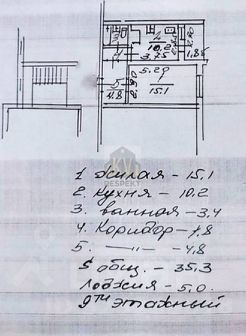 10.2
3.75
1.8
5.29
5
4.8
15.1
1 Жилая - 15.1
2. Кухня - 10.2
3. Ванная - 3.4
4. Коридор - 1,8
5. —"— - 4,8
S общ. - 35,3
Лоджия - 5,0.
9ти этажный